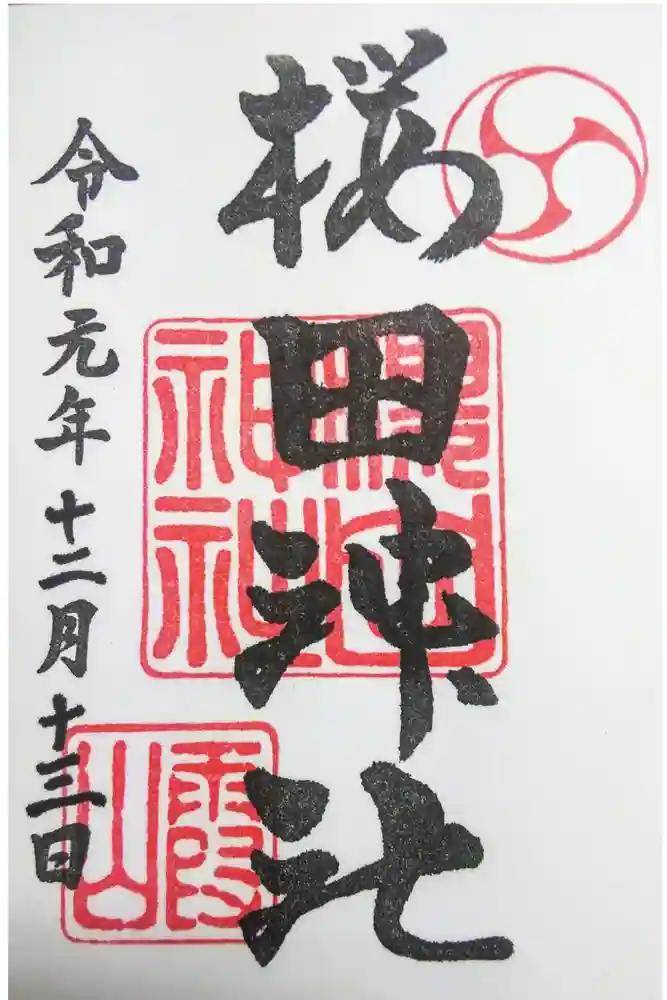 桜田神社
櫻田
神社
令和元年十二月十三日
霞山